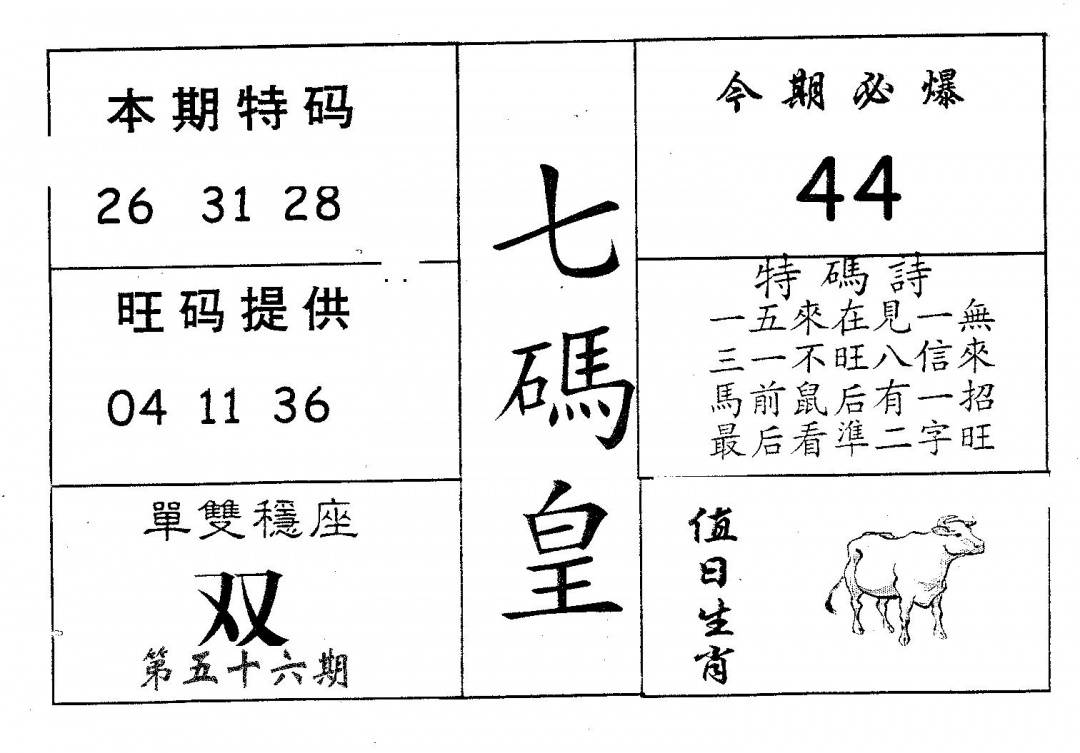 本期特码
26 31 28
旺码提供
04 11 36
單雙穩座
双
第五十六期
七碼皇
今期必爆
44
特碼詩
一五來在見一無
三一不旺八信來
馬前鼠后有一招
最后看準二字旺
值日生肖